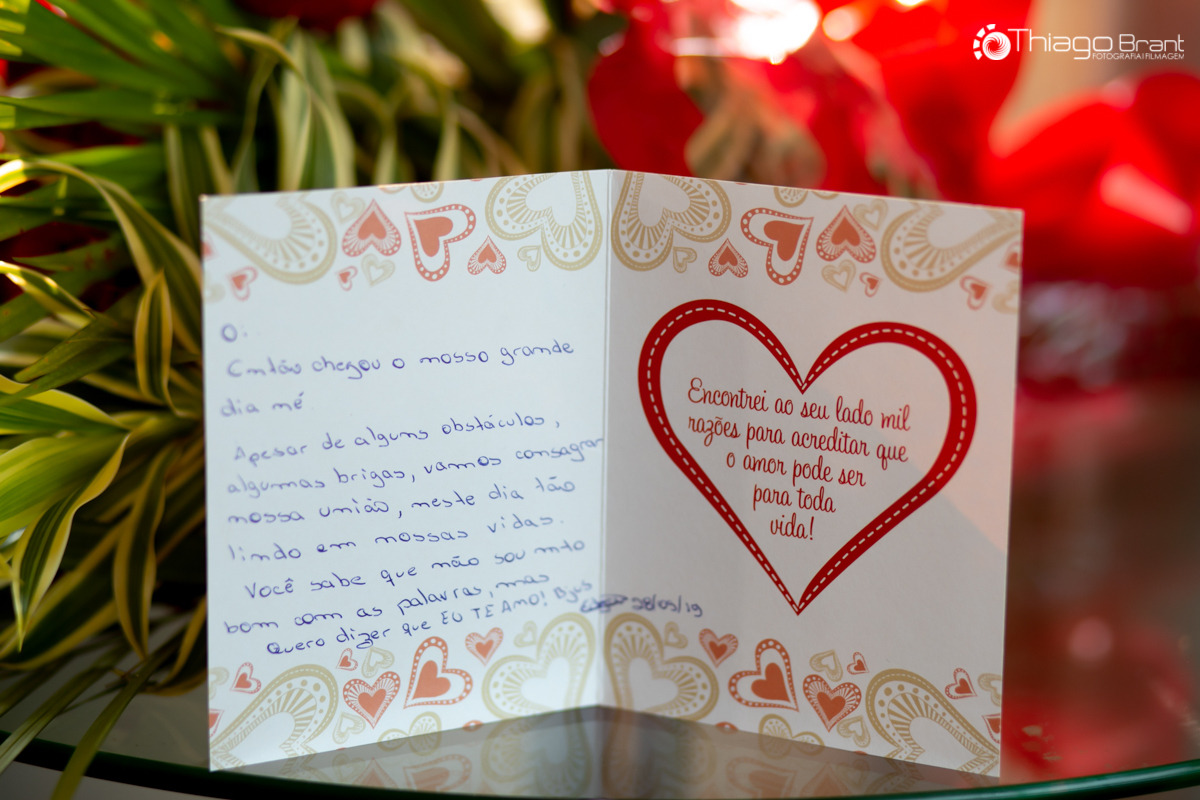 Thiago Brant
FOTOGRAFIA|FILMAGEM
O:
Então chegou o nosso grande
dia né
Apesar de alguns obstáculos,
algumas brigas, vamos consagrar
nossa união, neste dia tão
lindo em nossas vidas.
Você sabe que não sou mto
bom com as palavras, mas
Quero dizer que EU TE AMO! Bjus
28/09/19
Encontrei ao seu lado mil
razões para acreditar que
o amor pode ser
para toda
vida!